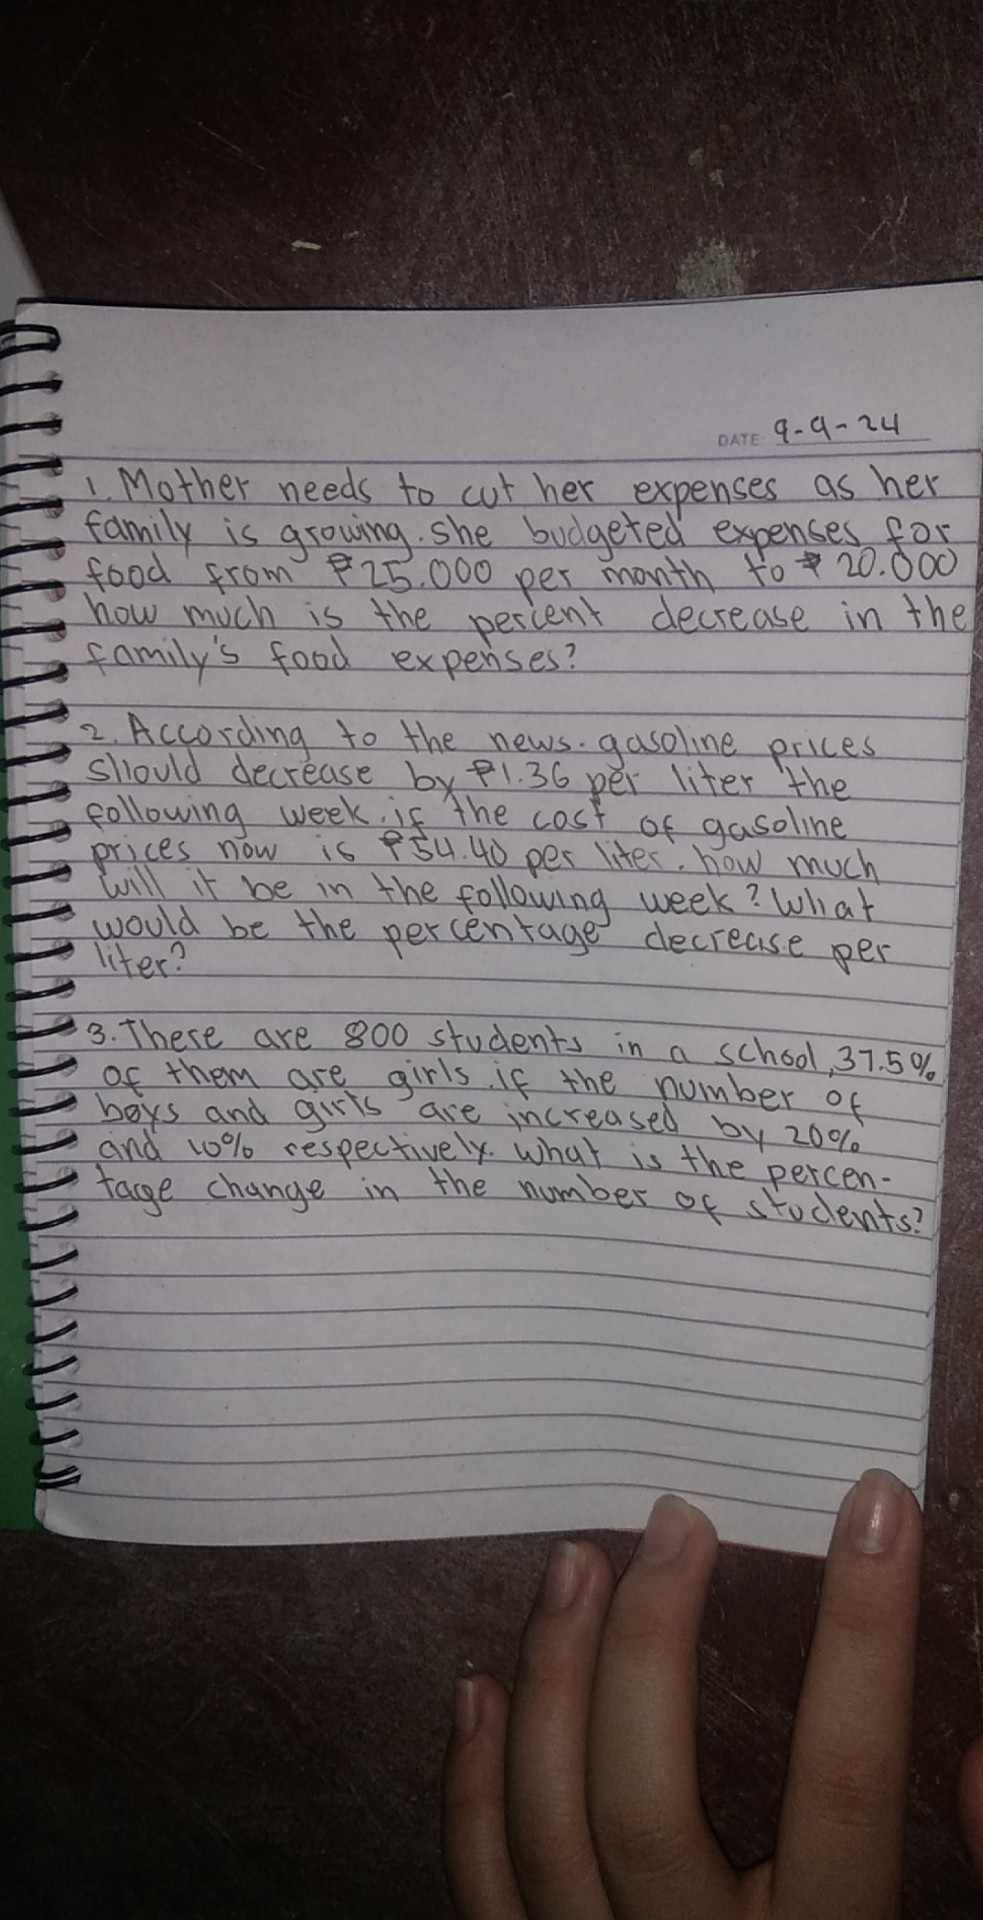 DATE: 9-9-24
1. Mother needs to cut her expenses as her
family is growing. she budgeted expenses for
food from ₱25.000 per month to ₱20.000
how much is the percent decrease in the
family's food expenses?
2. According to the news. gasoline prices
should decrease by ₱1.36 per liter the
following week. if the cost of gasoline
prices now is ₱54.40 per liter. how much
will it be in the following week? What
would be the percentage decrease per
liter?
3. There are 800 students in a school, 37.5%
of them are girls. if the number of
boys and girls are increased by 20%
and 10% respectively. What is the percen-
tage change in the number of students?